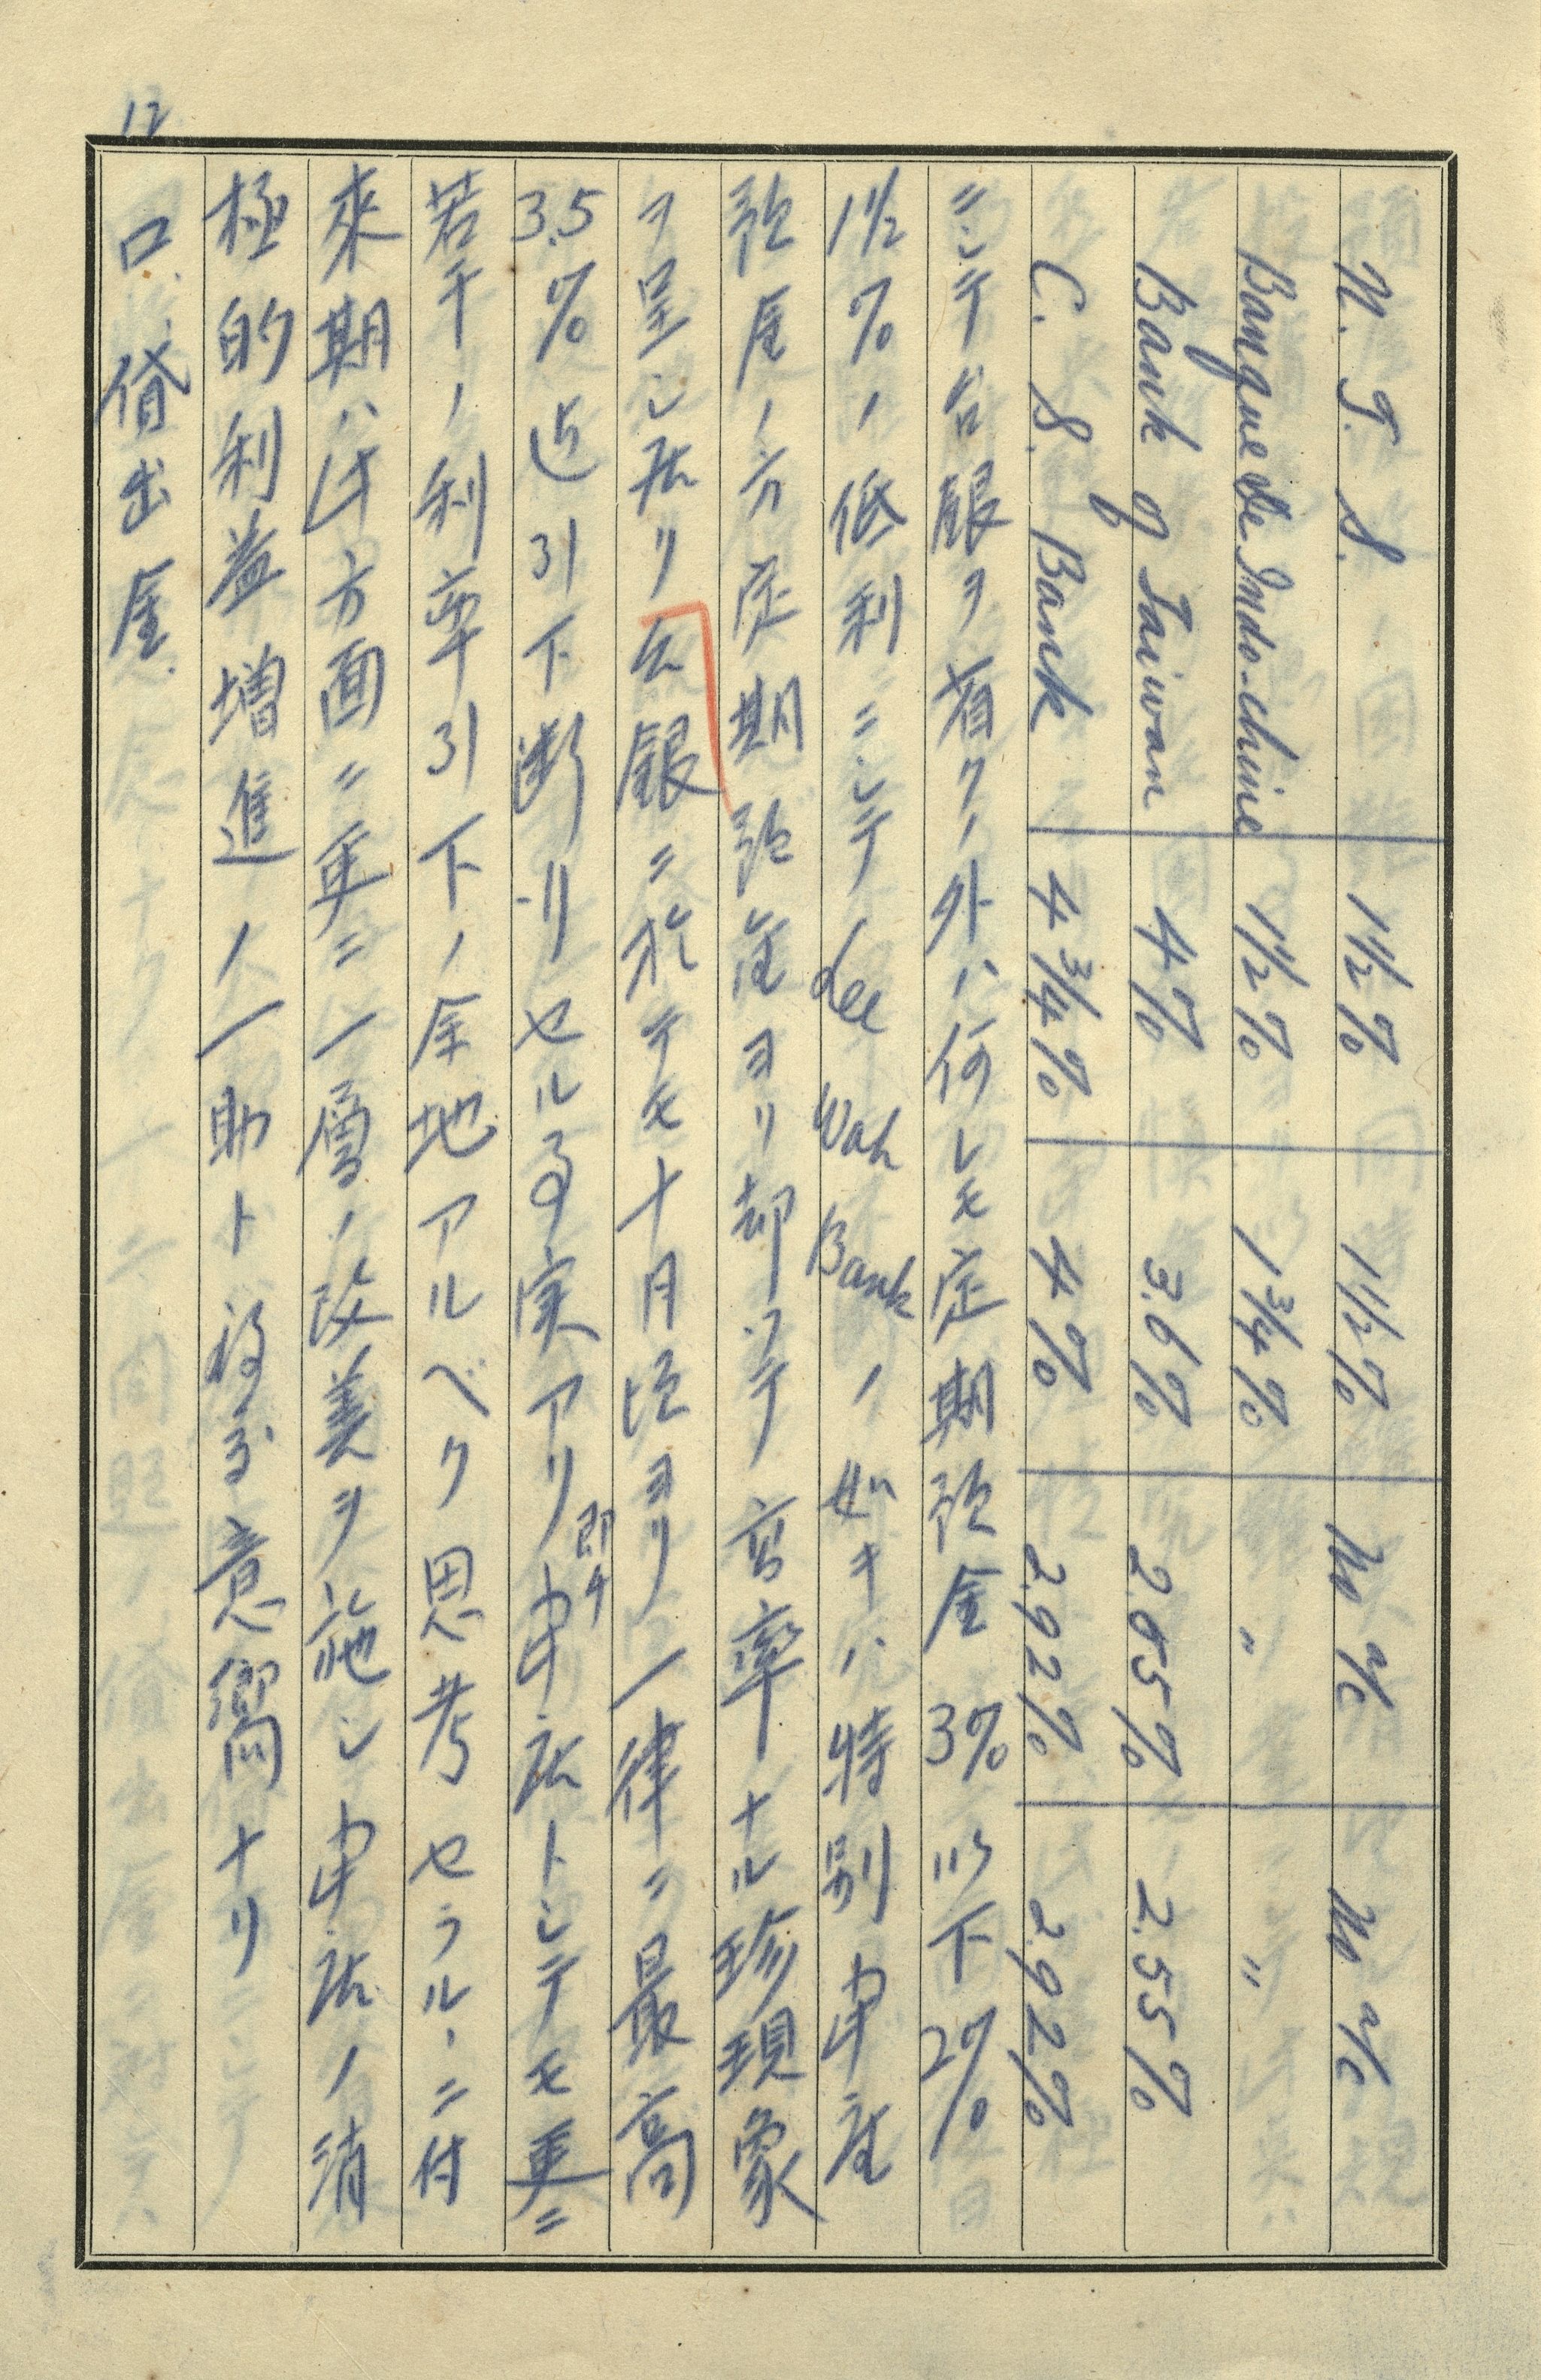 N. T. S. 1 1/2% 1 1/2% No a/c No a/c
Banque de Indo-chine 1 1/2% 1 3/4% 〃 〃
Bank of Taiwan 4% 3.6% 2.65% 2.55%
C. S. Bank 4 3/4% 4% 2.92% 2.92%
ニシテ台銀ヲ省クノ外ハ何レモ定期預金3%以下2%
1 1/2%ノ低利ニシテ Lee Wah Bank ノ如キハ特別申座
預金ノ方定期預金ヨリ却ッテ高率ナル珍現象
ヲ呈シ居リ台銀ニ於テモ十月頃ヨリ一律ニ最高
3.5%迄引下断行セル事実アリ即チ申店トシテモ更ニ
若干ノ利率引下ノ余地アルベク思考セラルヽニ付
來期ハ此方面ニ更ニ一層ノ改善ヲ施シ申店ノ消
極的利益増進ノ一助ト致ス意嚮ナリ
ロ.貸出金.
12